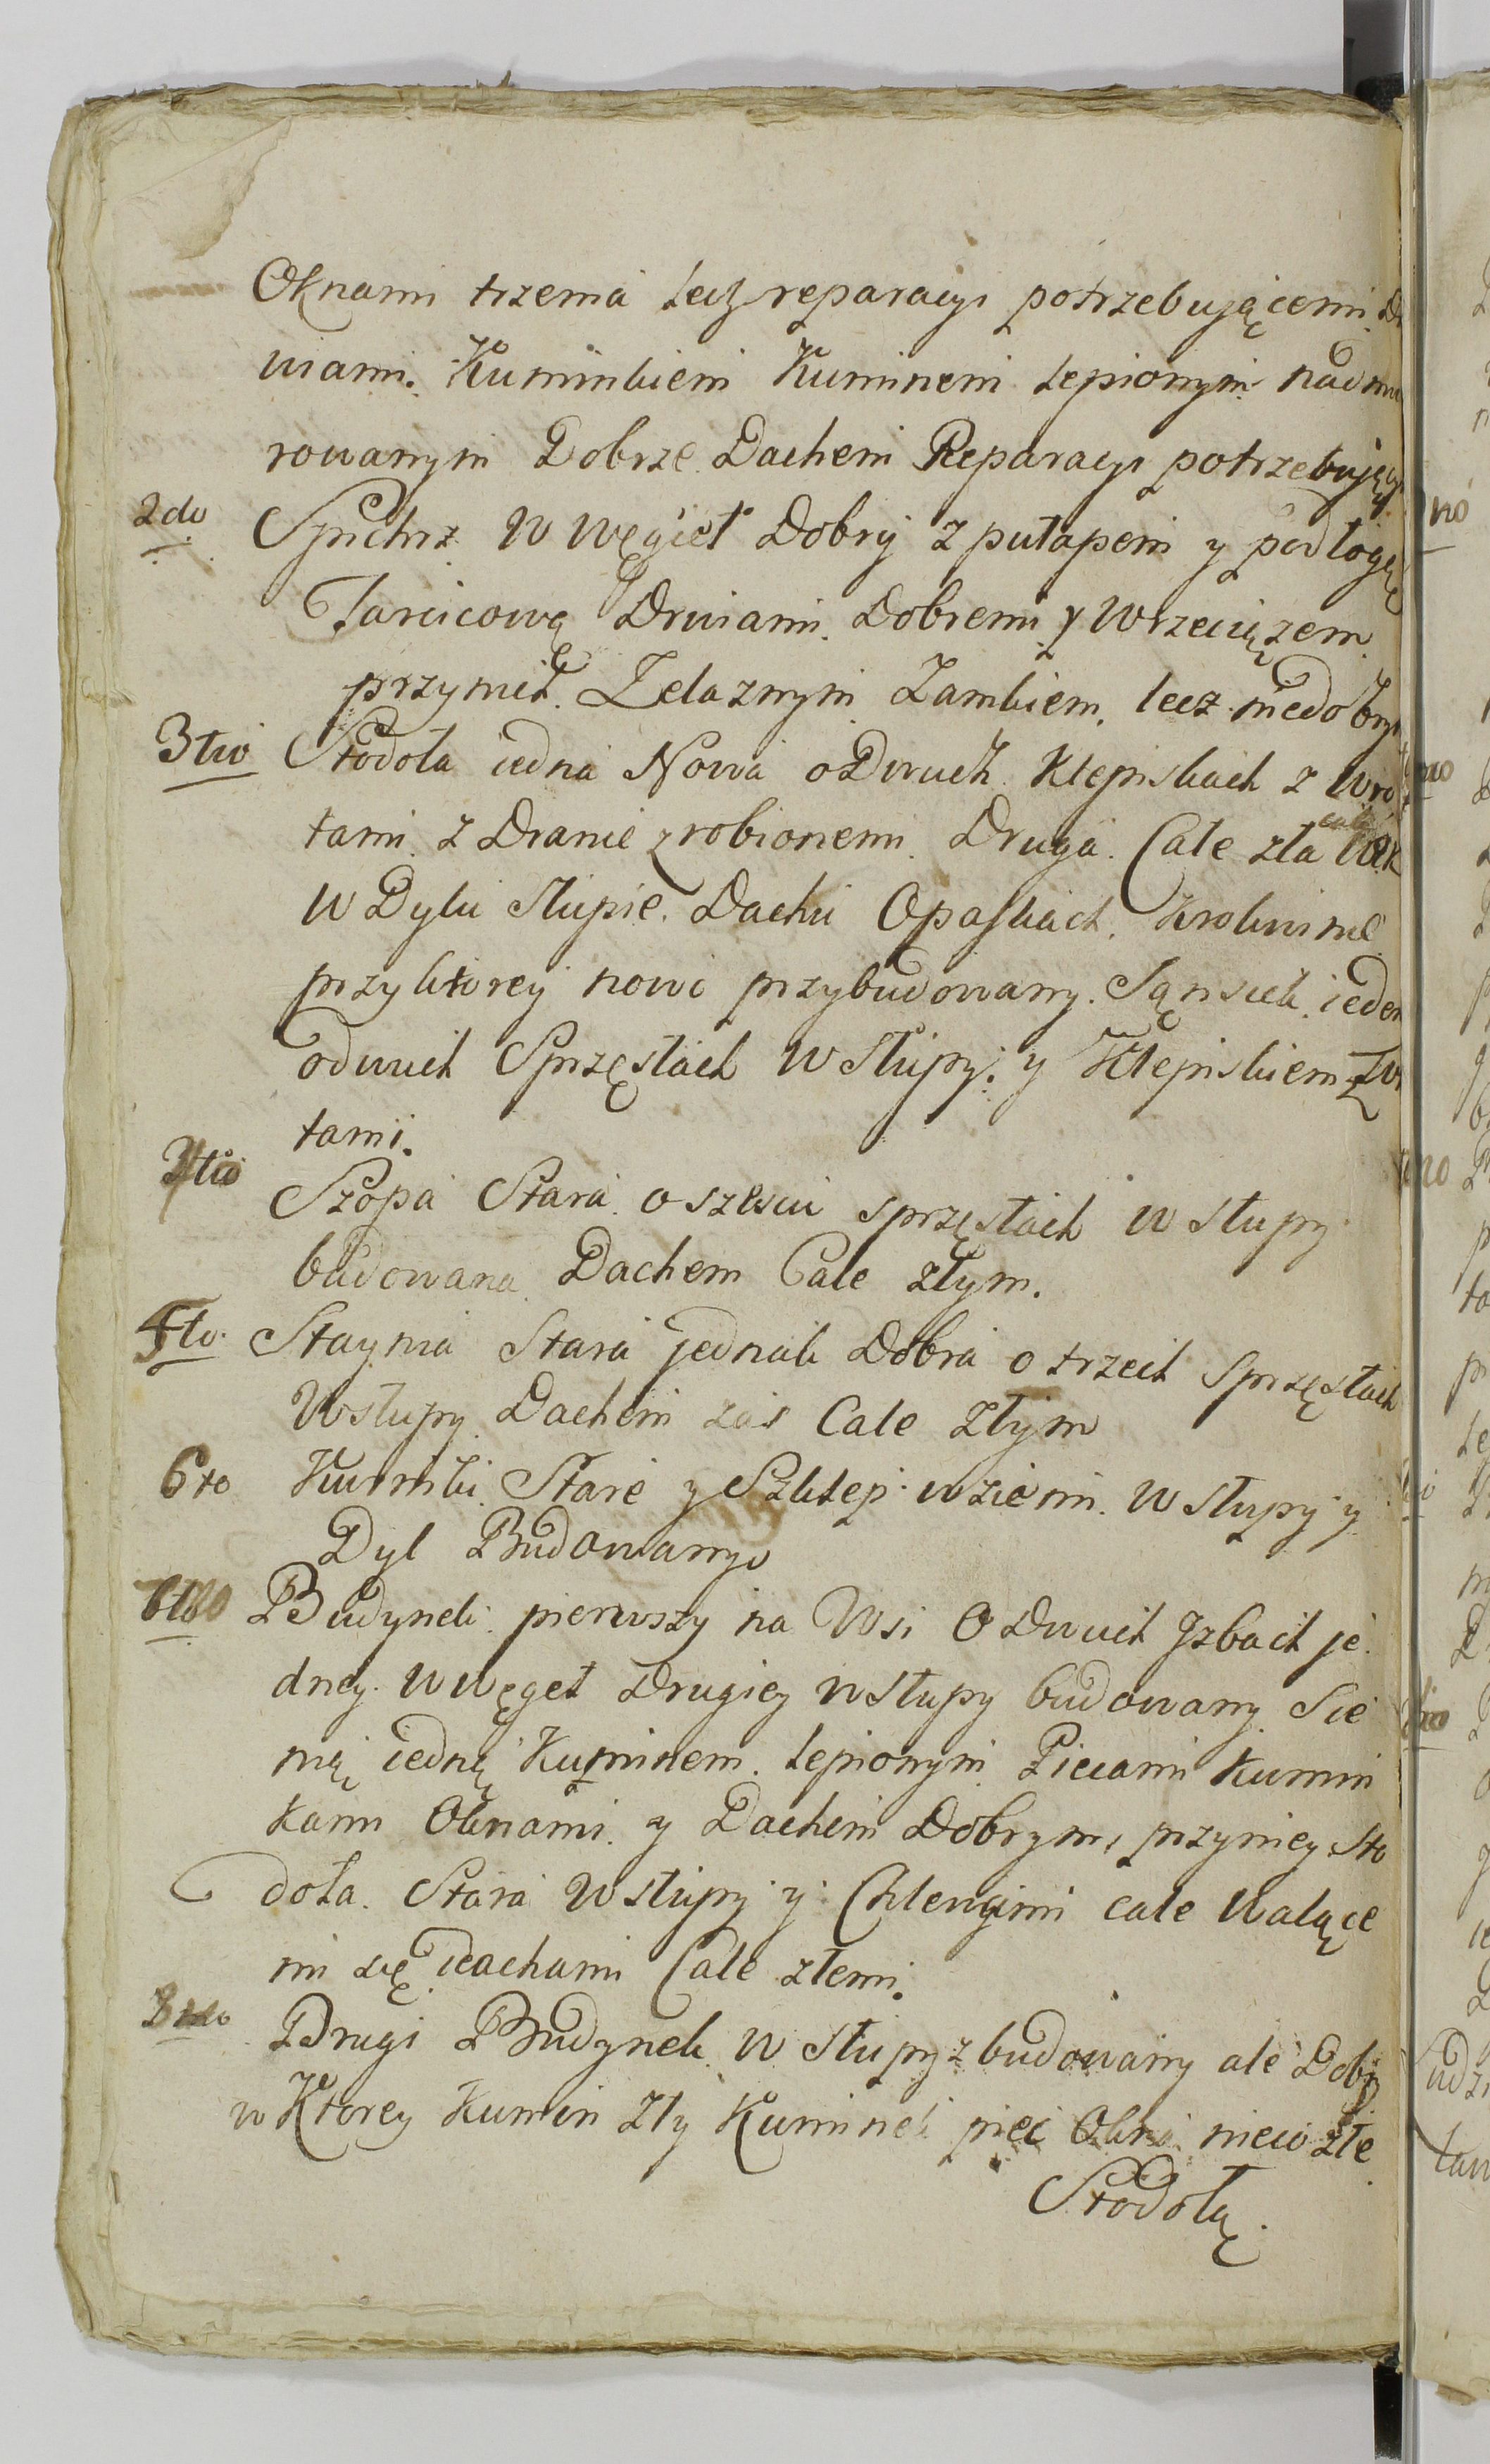 Oknami trzema lecz reparacyi potrzebującemi. D
wiami. Kuminkiem Kuminem lepionym nadmu
rowanym Dobrze. Dachem Reparacyi potrzebując
2do Spichrz w węgieł Dobry z pułapem y podłogą
Tarcicową Drwiami Dobremi y Wrzeciązem
przynich Zelaznym Zamkiem, lecz niedobry
3tio Stodoła iedna Nowa o Dwuch Klepiskach z Wro
tami z Dranic zrobionemi. Druga. Cale zła
w Dylu Słupie. Dachu Opaskach. Krokwinie
przyktorey nowo przybudowany. Sąsiek ieden
odwuch Sprzęsłach w Słupy. y Klepiskiem z Wr
tami.
4to Szopa Stara o szesciu sprzęsłach w słupy
budowana Dachem Cale złym.
5to. Staynia Stara jednak Dobra o trzech Sprzęsłach
Wsłupy Dachem zas Cale złym
6to Kurniki Stare y Szklep wziemi. w słupy y
Dyl Budowany
Budynek pierwszy na Wsi o Dwuch Jzbach je
dney w węgeł Drugiey w słupy budowany Sie
nią iedną Kuminem lepionym Piecami Kumin
kami Oknami y Dachem Dobrym, przyniey Sto
doła. Stara Wsłupy y Chlewami cale walące
mi się dachami Cale złemi.
Drugi Budynek w słupy zbudowany ale Dobry
w Ktorey Kumin zły Kuminek piec Okna nieco złe
Stodołą.